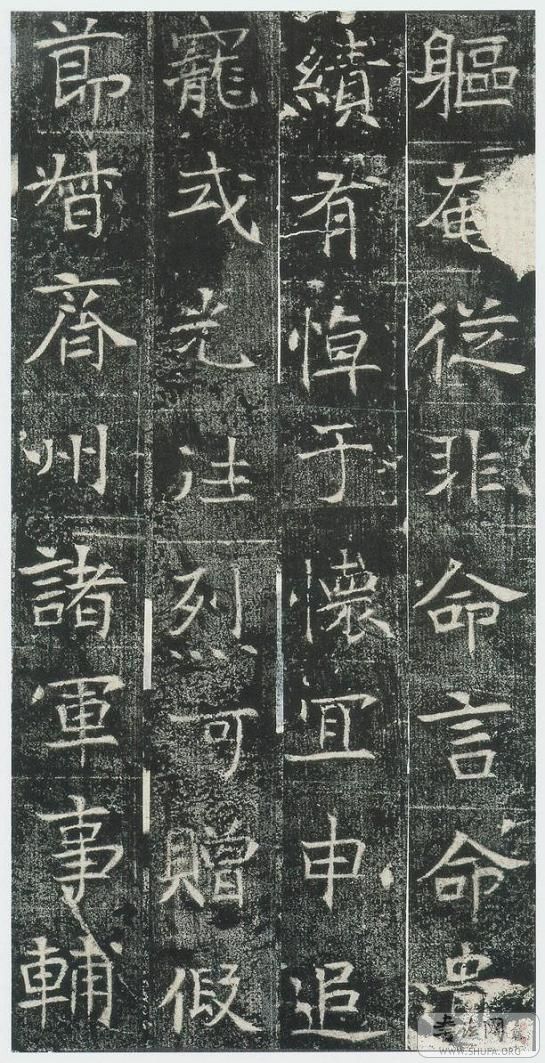 軀奄從非命言命
績有悼于懷冝申追
寵式光往烈可贈假
節督齊州諸軍事輔
WWW.SHUFA.ORG